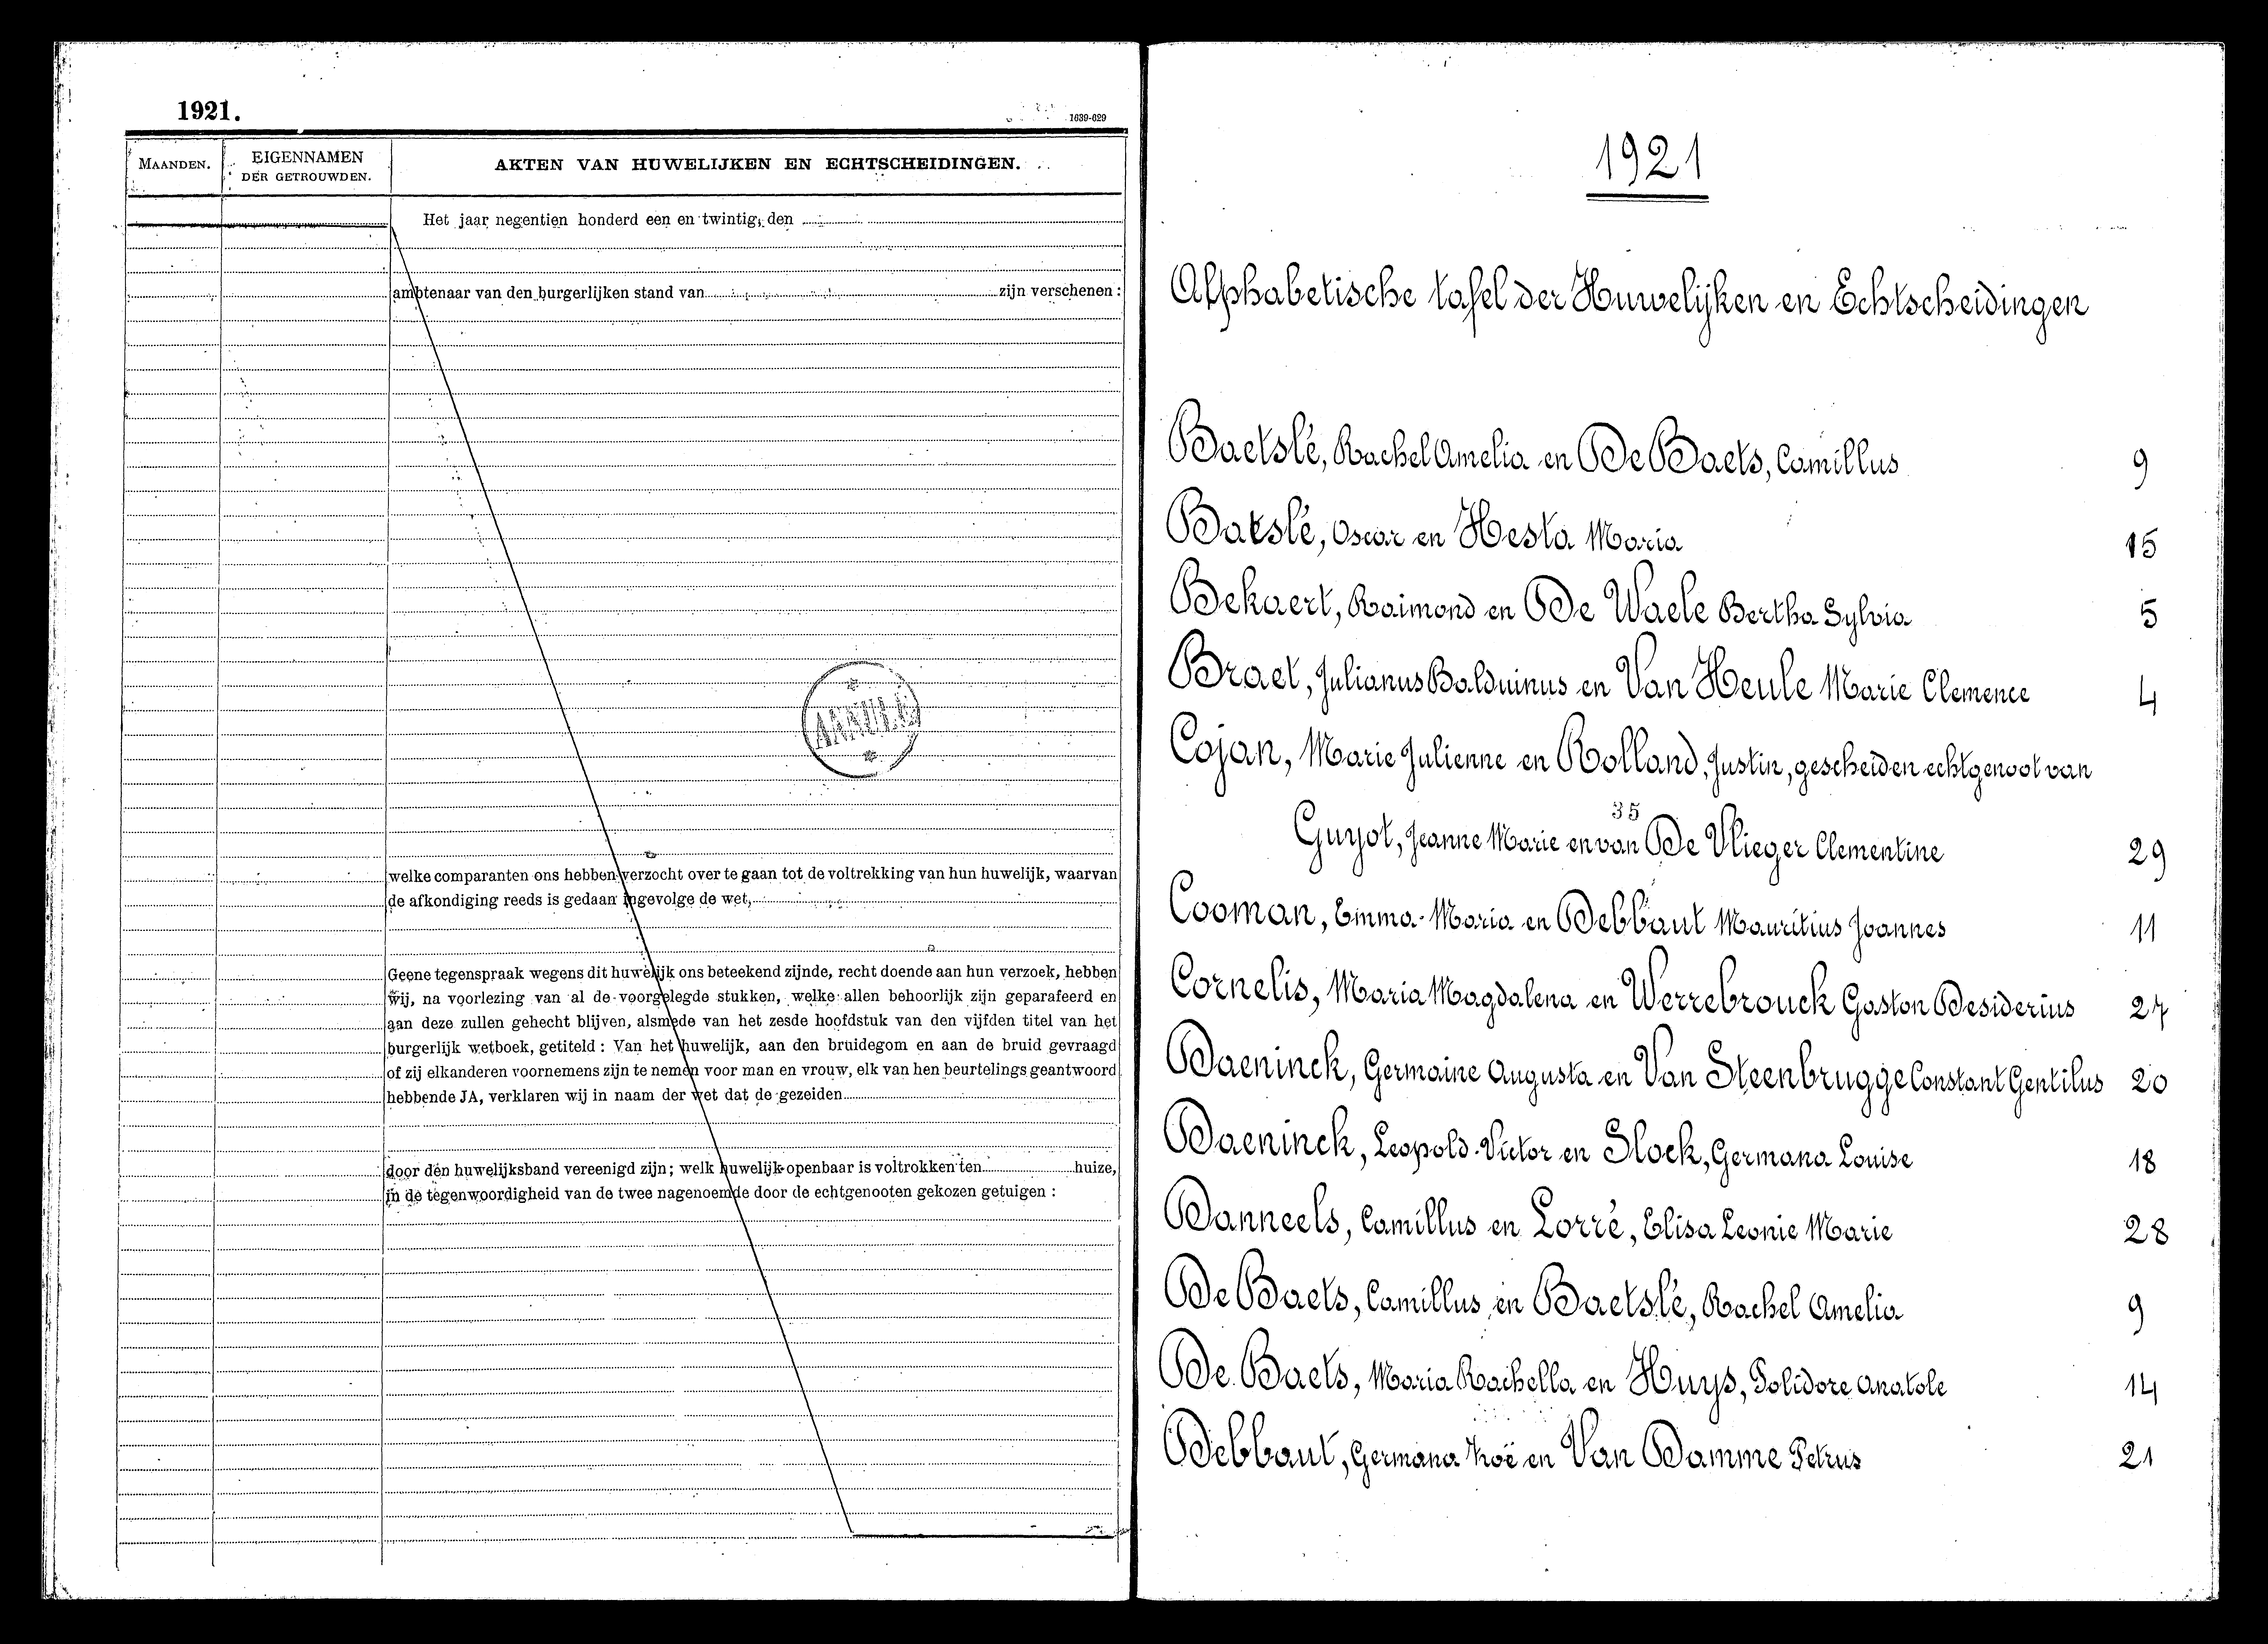 1921.
1639-629
MAANDEN.
EIGENNAMEN
DER GETROUWDEN.
AKTEN VAN HUWELIJKEN EN ECHTSCHEIDINGEN.
Het jaar negentien honderd een en twintig, den
ambtenaar van den burgerlijken stand van zijn verschenen :
ANNULÉ
welke comparanten ons hebben verzocht over te gaan tot de voltrekking van hun huwelijk, waarvan
de afkondiging reeds is gedaan ingevolge de wet,
Geene tegenspraak wegens dit huwelijk ons beteekend zijnde, recht doende aan hun verzoek, hebben
wij, na voorlezing van al de voorgelegde stukken, welke allen behoorlijk zijn geparafeerd en
aan deze zullen gehecht blijven, alsmede van het zesde hoofdstuk van den vijfden titel van het
burgerlijk wetboek, getiteld : Van het huwelijk, aan den bruidegom en aan de bruid gevraagd
of zij elkanderen voornemens zijn te nemen voor man en vrouw, elk van hen beurtelings geantwoord
hebbende JA, verklaren wij in naam der wet dat de gezeiden
door den huwelijksband vereenigd zijn; welk huwelijk openbaar is voltrokken ten huize,
in de tegenwoordigheid van de twee nagenoemde door de echtgenooten gekozen getuigen :
1921
Alphabetische tafel der Huwelijken en Echtscheidingen
Baetslé, Rachel Amelia en De Baets, Camillus 9
Batslé, Oscar en Hesta Maria 15
Bekaert, Raimond en De Waele Bertha Sylvia 5
Braet, Julianus Balduinus en Van Heule Marie Clemence 4
Cojan, Marie Julienne en Rolland, Justin, gescheiden echtgenoot van
35
Guyot, Jeanne Marie en van De Vlieger Clementine 29
Cooman, Emma Maria en Debbaut Mauritius Joannes 11
Cornelis, Maria Magdalena en Werrebrouck Gaston Desiderius 27
Daeninck, Germaine Augusta en Van Steenbrugge Constant Gentilus 20
Daeninck, Leopold Victor en Slock, Germana Louise 18
Danneels, Camillus en Lorré, Elisa Leonie Marie 28
De Baets, Camillus en Baetslé, Rachel Amelia 9
De Baets, Maria Rachella en Huys, Polidore Anatole 14
Debbaut, Germana Zoë en Van Damme Petrus 21